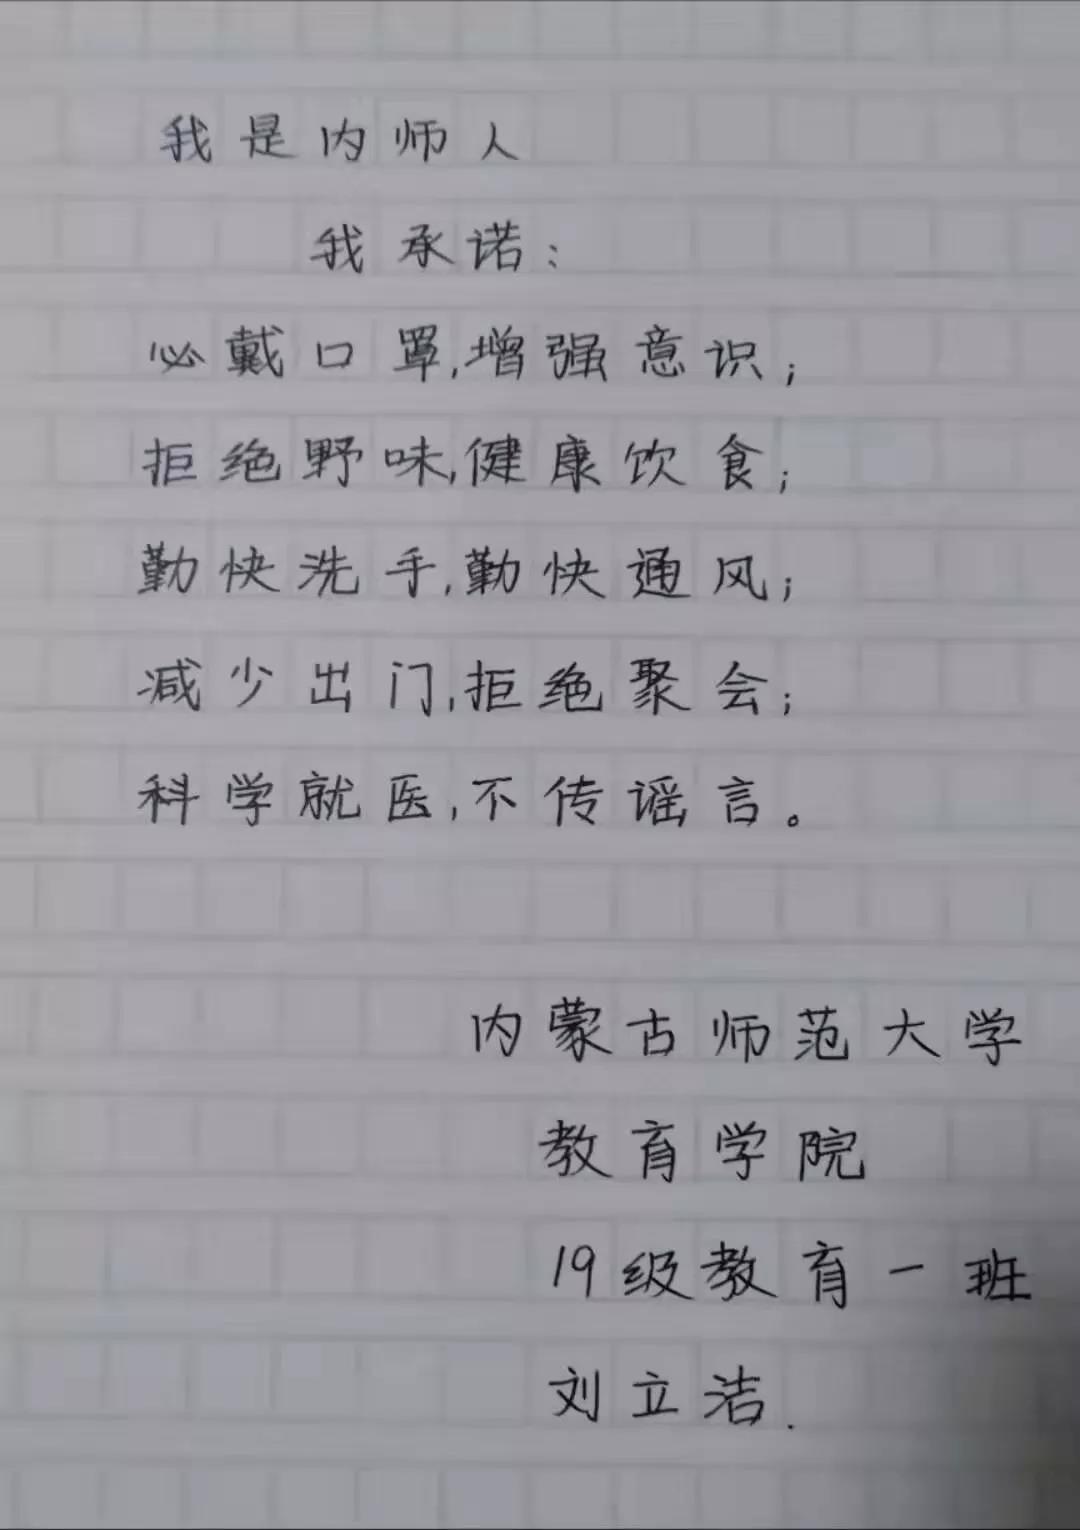 我是内师人
我承诺:
必戴口罩,增强意识;
拒绝野味,健康饮食;
勤快洗手,勤快通风;
减少出门,拒绝聚会;
科学就医,不传谣言。
内蒙古师范大学
教育学院
19级教育一班
刘立洁.